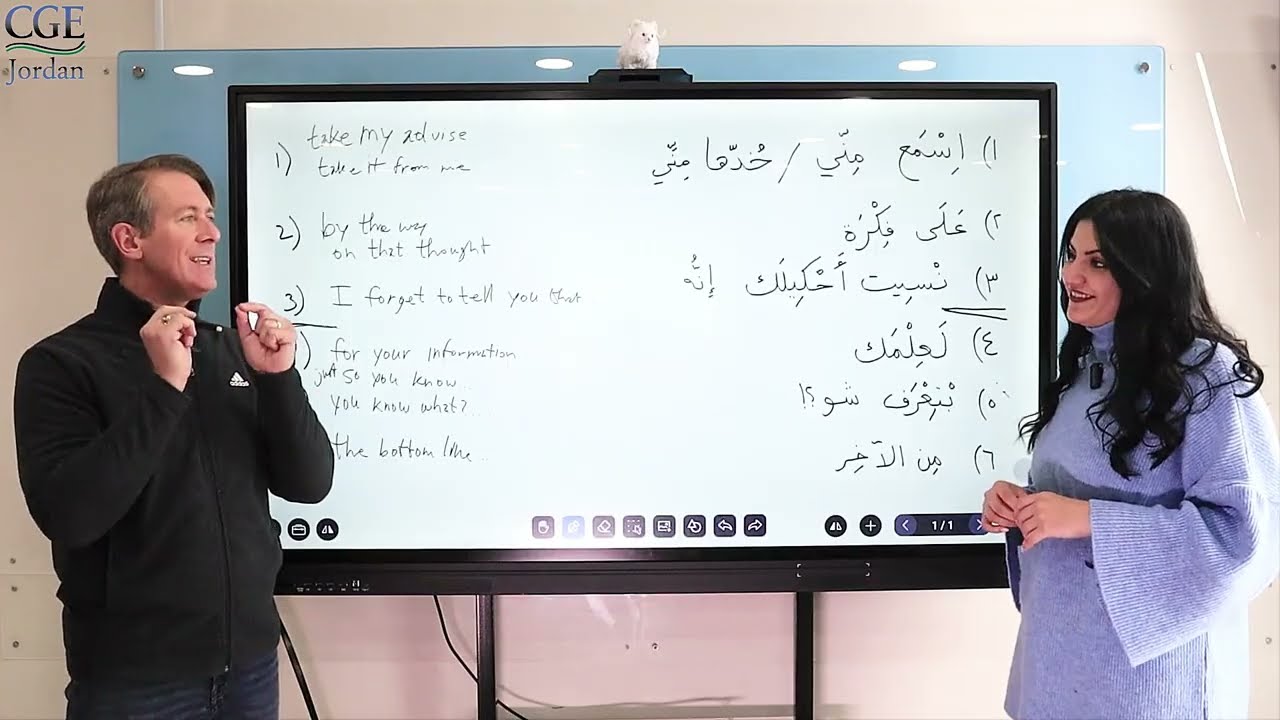 CGE
Jordan
take my advise
1) take it from me
١) اِسْمَع مِنّي / خُدّها مِنّي
2) by the way
on that thought
٢) عَلَى فِكْرَة
3) I forget to tell you that
٣) نْسِيت أَحْكِيلَك إِنُّه
) for your information
just so you know...
٤) لَعِلْمَك
you know what?...
٥) بْتِعْرَف شو؟!
the bottom line...
٦) مِن الآخِر
1/1
adidas